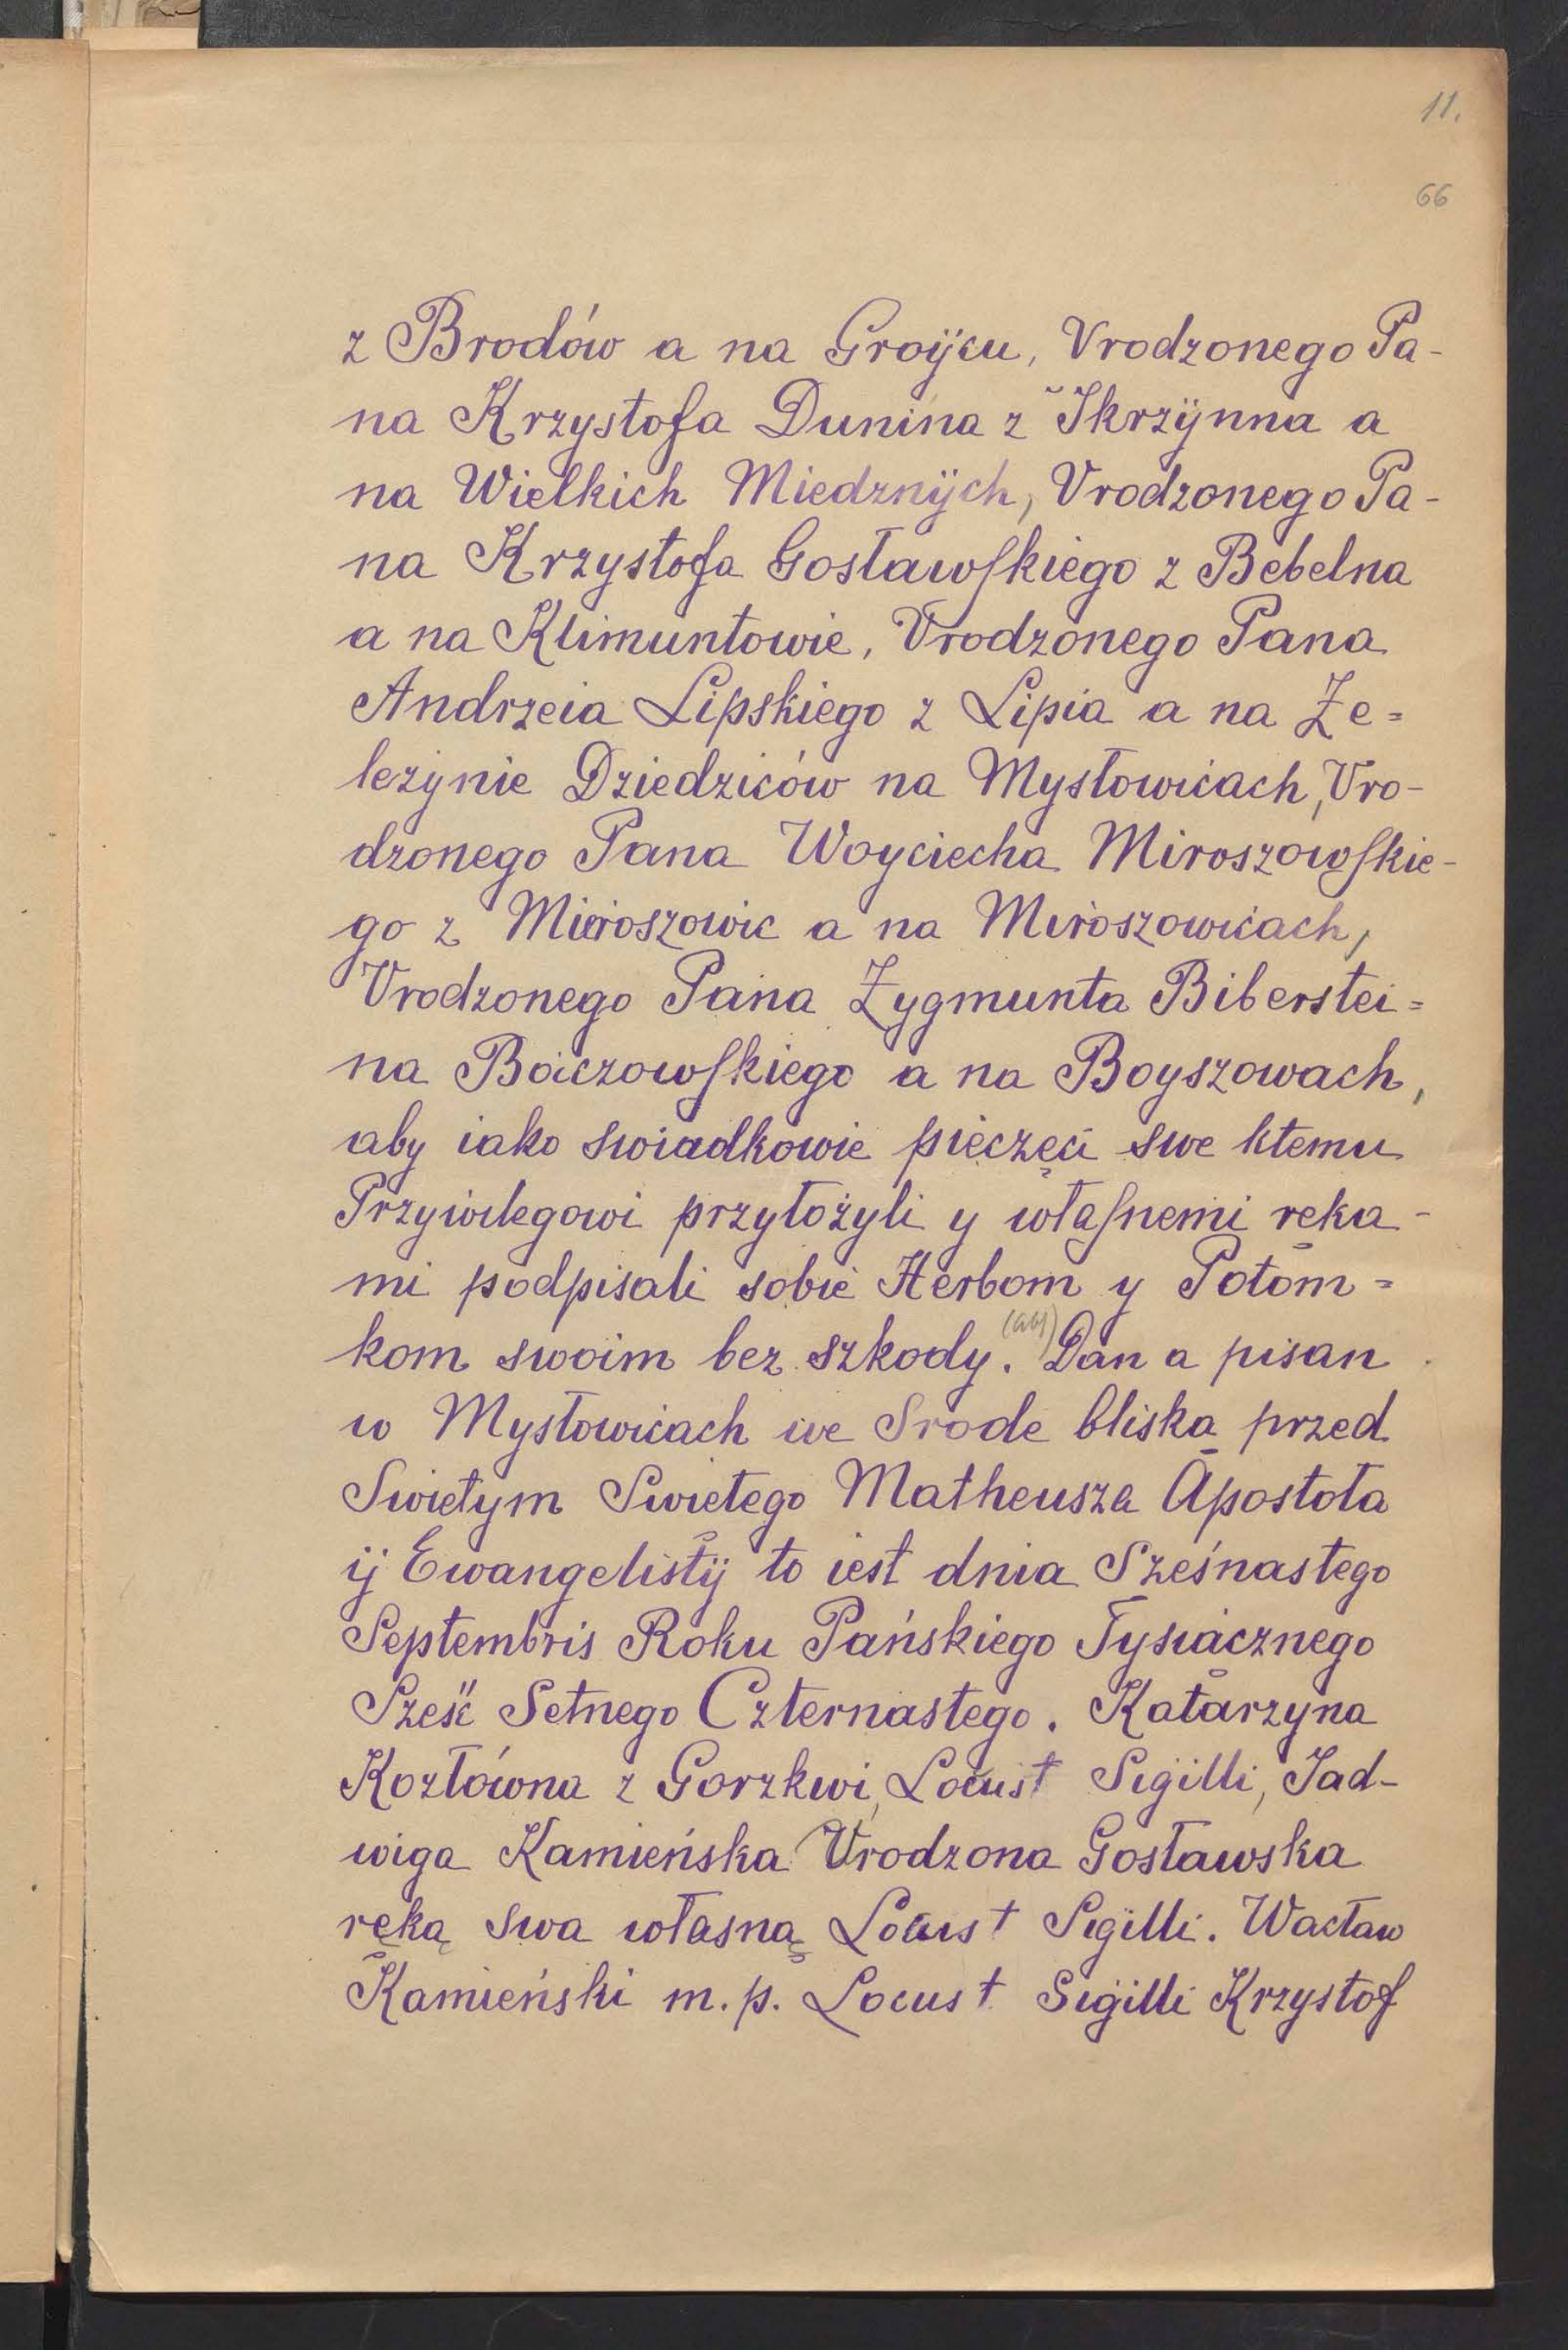 11.
66
z Brodów a na Groÿcu, Vrodzonego Pa-
na Krzystofa Dunina z Skrzÿnna a
na Wielkich Miedznÿch, Vrodzonego Pa-
na Krzystofa Gosławſkiego z Bebelna
a na Klimuntowie, Vrodzonego Pana
Andrzeia Lipskiego z Lipia a na Że=
leżynie Dziedziców na Mysłowicach, Vro-
dzonego Pana Woyciecha Miroszowſkie-
go z Mieroszowic a na Miroszowicach,
Vrodzonego Pana Zygmunta Biberstei=
na Boiczowſkiego a na Boyszowach,
aby iako swiadkowie pieczęci swe ktemu
Przywilegowi przyłożyli y właſnemi ręka-
mi podpisali sobie Herbom y Potom=
kom swoim bez szkody. Dan a pisan
w Mysłowicach we Srode bliską przed
Swiętym Swiętego Matheusza Apostoła
ÿ Ewangelistÿ to iest dnia Sześnastego
Septembris Roku Pańskiego Tysiącznego
Sześć Setnego Czternastego. Katarzyna
Kozłówna z Gorzkwi, Locus † Sigilli, Jad-
wiga Kamieńska Vrodzona Gosławska
ręką swa własną Locus † Sigilli. Wacław
Kamieński m.p. Locus † Sigilli Krzystof